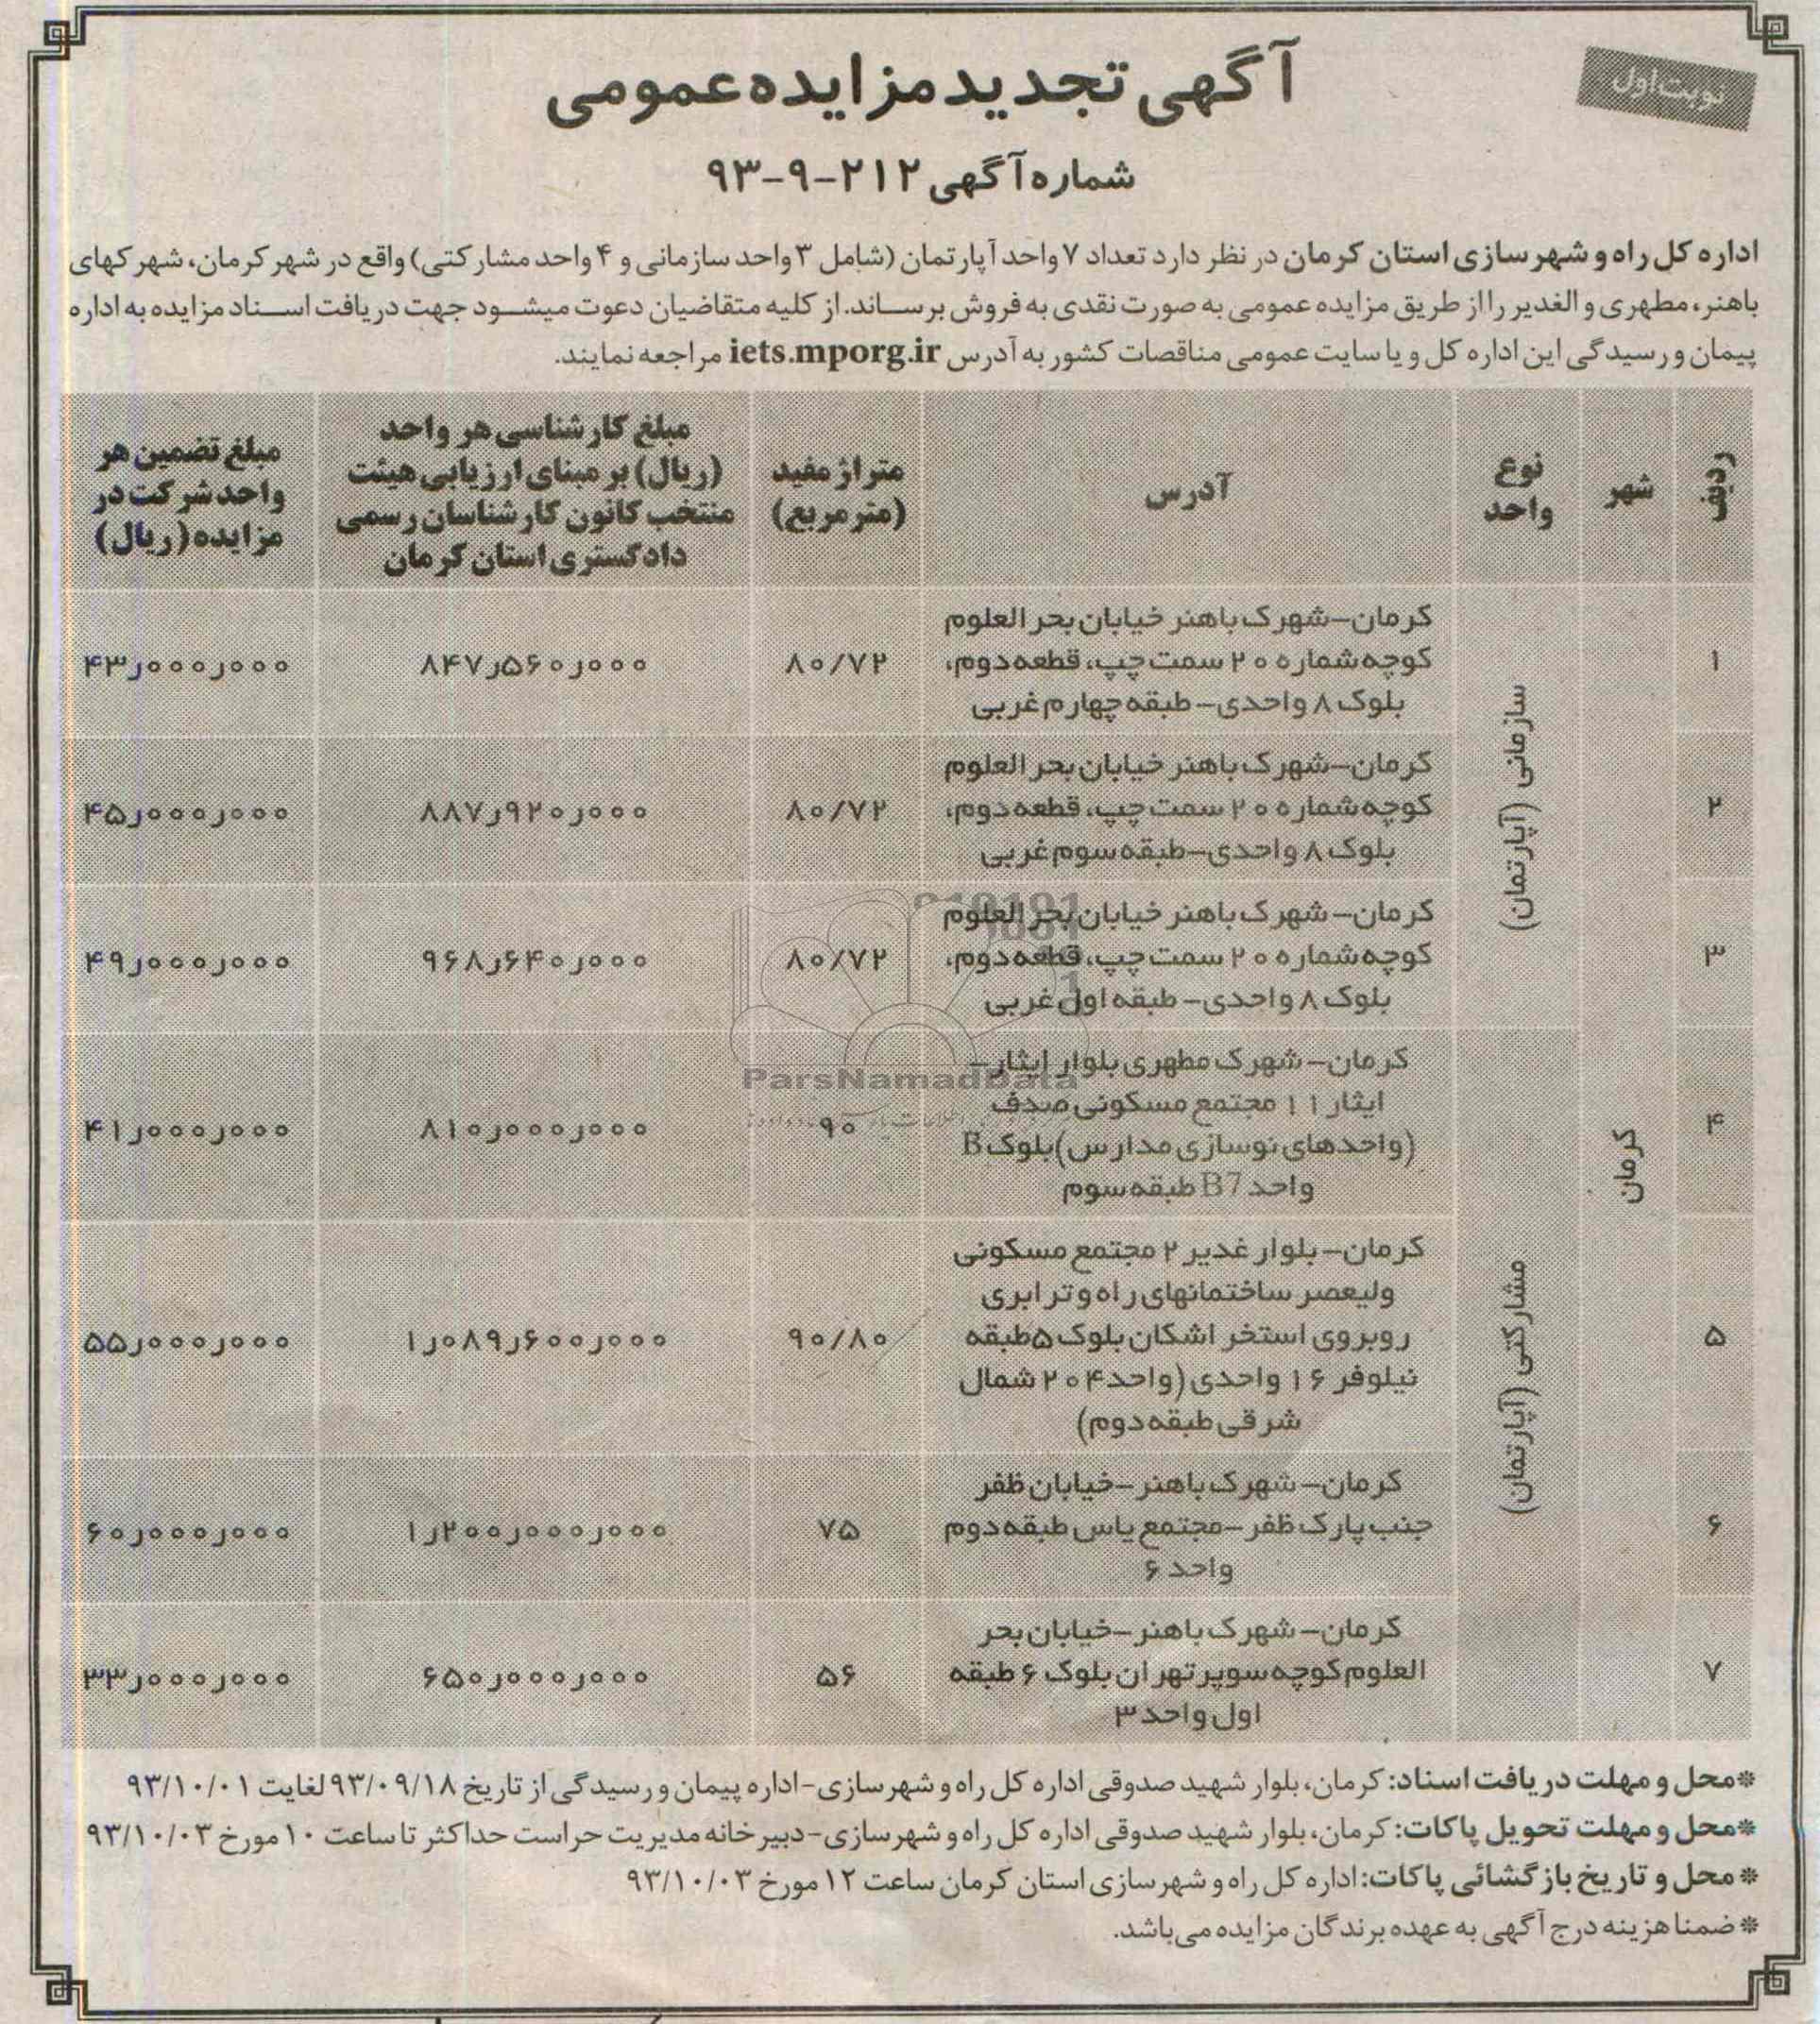 نوبت اول
آگهی تجدید مزایده عمومی
شماره آگهی ۲۱۲-۹-۹۳
اداره کل راه و شهرسازی استان کرمان در نظر دارد تعداد ۷ واحد آپارتمان (شامل ۳ واحد سازمانی و ۴ واحد مشارکتی) واقع در شهر کرمان، شهرکهای
باهنر، مطهری و الغدیر را از طریق مزایده عمومی به صورت نقدی به فروش برساند. از کلیه متقاضیان دعوت میشود جهت دریافت اسناد مزایده به اداره
پیمان و رسیدگی این اداره کل و یا سایت عمومی مناقصات کشور به آدرس iets.mporg.ir مراجعه نمایند.
ردیف
شهر
نوع
واحد
آدرس
متراژ مفید
(متر مربع)
مبلغ کارشناسی هر واحد
(ریال) بر مبنای ارزیابی هیئت
منتخب کانون کارشناسان رسمی
دادگستری استان کرمان
مبلغ تضمین هر
واحد شرکت در
مزایده (ریال)
کرمان
سازمانی (آپارتمان)
۱
کرمان-شهرک باهنر خیابان بحرالعلوم
کوچه شماره ۲۰ سمت چپ، قطعه دوم،
بلوک ۸ واحدی- طبقه چهارم غربی
۸۰/۷۲
۸۴۷ر۵۶۰ر۰۰۰
۴۳ر۰۰۰ر۰۰۰
۲
کرمان-شهرک باهنر خیابان بحرالعلوم
کوچه شماره ۲۰ سمت چپ، قطعه دوم،
بلوک ۸ واحدی-طبقه سوم غربی
۸۰/۷۲
۸۸۷ر۹۲۰ر۰۰۰
۴۵ر۰۰۰ر۰۰۰
۳
کرمان- شهرک باهنر خیابان بحر العلوم
کوچه شماره ۲۰ سمت چپ، قطعه دوم،
بلوک ۸ واحدی- طبقه اول غربی
۸۰/۷۲
۹۶۸ر۶۴۰ر۰۰۰
۴۹ر۰۰۰ر۰۰۰
مشارکتی (آپارتمان)
۴
کرمان- شهرک مطهری بلوار ایثار-
ایثار ۱۱ مجتمع مسکونی صدف
(واحدهای نوسازی مدارس) بلوک B
واحد B7 طبقه سوم
۹۰
۸۱۰ر۰۰۰ر۰۰۰
۴۱ر۰۰۰ر۰۰۰
۵
کرمان- بلوار غدیر ۲ مجتمع مسکونی
ولیعصر ساختمانهای راه و ترابری
روبروی استخر اشکان بلوک ۵ طبقه
نیلوفر ۱۶ واحدی (واحد ۲۰۴ شمال
شرقی طبقه دوم)
۹۰/۸۰
۱ر۰۸۹ر۶۰۰ر۰۰۰
۵۵ر۰۰۰ر۰۰۰
۶
کرمان- شهرک باهنر -خیابان ظفر
جنب پارک ظفر -مجتمع یاس طبقه دوم
واحد ۶
۷۵
۱ر۲۰۰ر۰۰۰ر۰۰۰
۶۰ر۰۰۰ر۰۰۰
۷
کرمان- شهرک باهنر -خیابان بحر
العلوم کوچه سوپر تهران بلوک ۶ طبقه
اول واحد ۳
۵۶
۶۵۰ر۰۰۰ر۰۰۰
۳۳ر۰۰۰ر۰۰۰
ParsNamadData
*محل و مهلت دریافت اسناد: کرمان، بلوار شهید صدوقی اداره کل راه و شهرسازی-اداره پیمان و رسیدگی از تاریخ ۹۳/۰۹/۱۸ لغایت ۹۳/۱۰/۰۱
*محل و مهلت تحویل پاکات: کرمان، بلوار شهید صدوقی اداره کل راه و شهرسازی-دبیرخانه مدیریت حراست حداکثر تا ساعت ۱۰ مورخ ۹۳/۱۰/۰۳
* محل و تاریخ بازگشائی پاکات: اداره کل راه و شهرسازی استان کرمان ساعت ۱۲ مورخ ۹۳/۱۰/۰۳
* ضمنا هزینه درج آگهی به عهده برندگان مزایده می‌باشد.